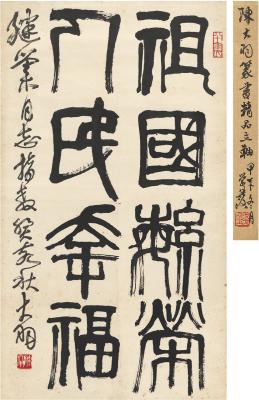 祖國繁榮
人民幸福
健業同志指教癸亥秋大羽
陳大羽篆書精品立軸